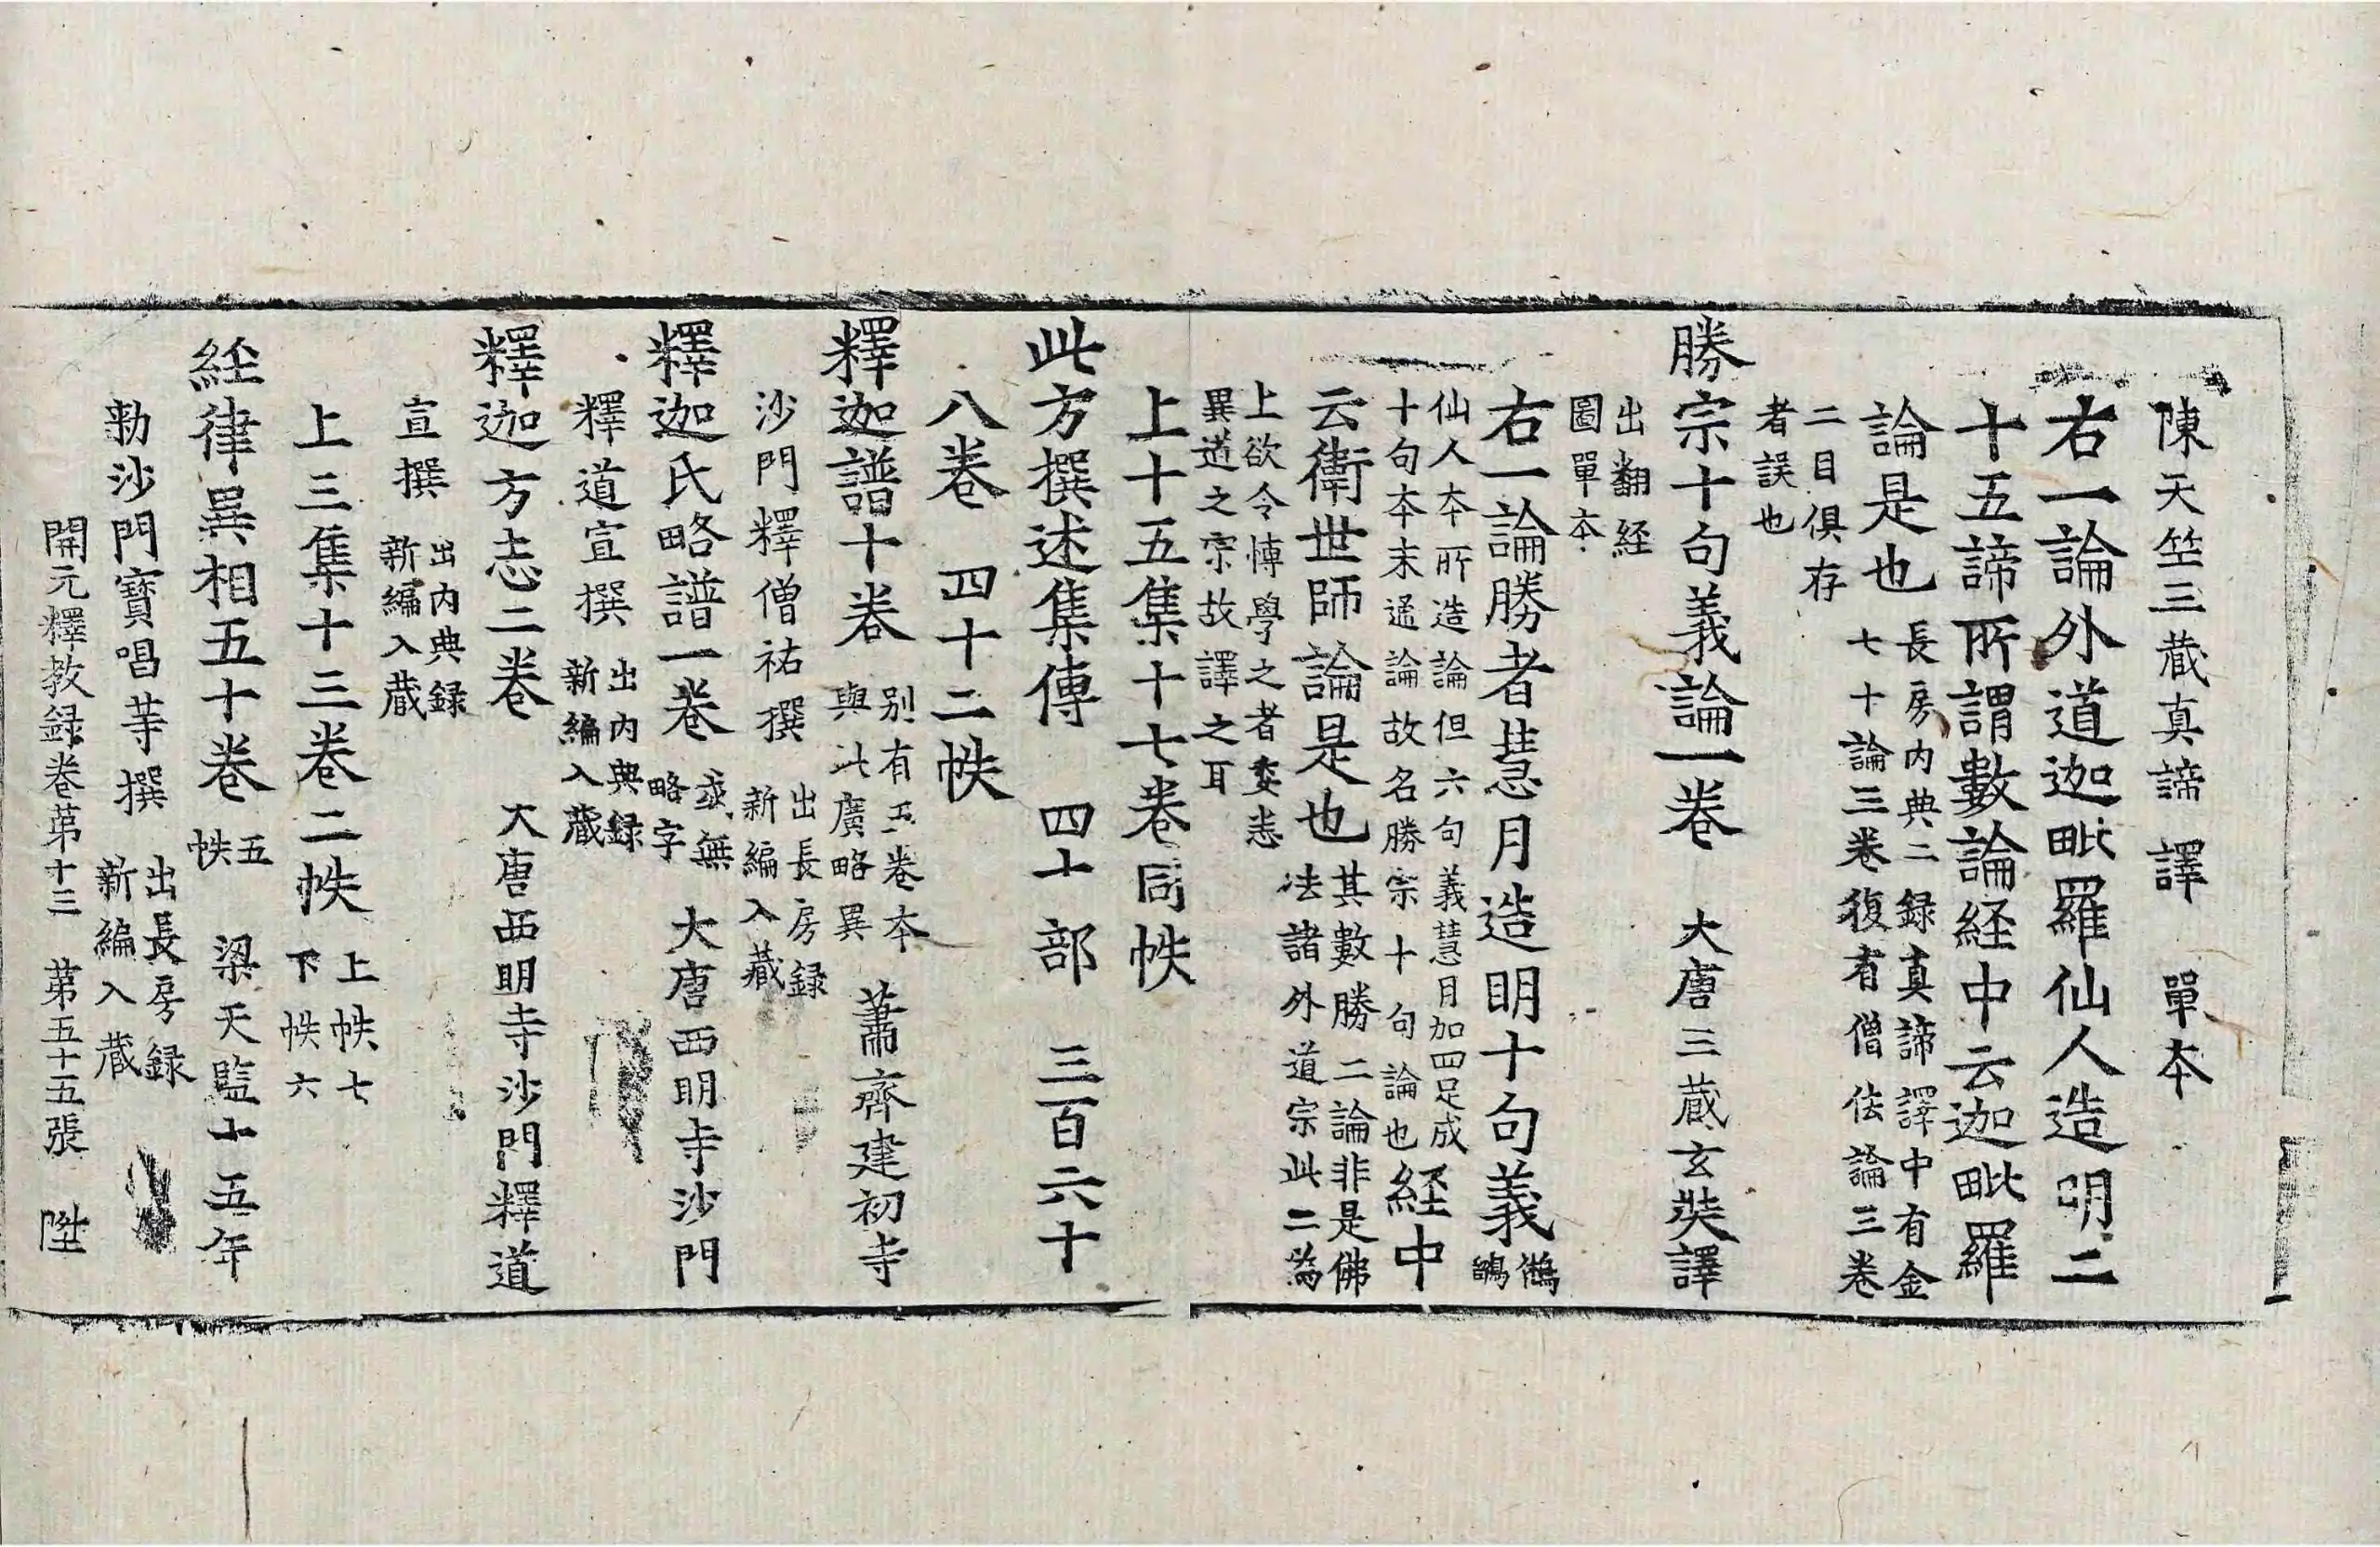 陳天竺三藏真諦譯 單本
右一論外道迦毗羅仙人造明二
十五諦所謂數論経中云迦毗羅
論是也 長房内典二録真諦譯中有金
七十論三卷復有僧佉論三卷
二目俱存
者誤也
勝宗十句義論一卷 大唐三藏玄奘譯
出翻経
圖單本
右一論勝者慧月造明十句義 鵂
鶹
仙人本所造論但六句義慧月加四足成
十句本末通論故名勝宗十句論也 経中
云衛世師論是也 其數勝二論非是佛
法諸外道宗此二為
上欲令愽學之者委悉
異道之宗故譯之耳
上十五集十七卷同帙
此方撰述集傳 四十部 三百六十
八卷 四十二帙
釋迦譜十卷 別有五卷本
與此廣略異 蕭齊建初寺
沙門釋僧祐撰 出長房録
新編入藏
釋迦氏略譜一卷 或無
略字 大唐西明寺沙門
釋道宣撰 出内典録
新編入藏
釋迦方志二卷 大唐西明寺沙門釋道
宣撰 出内典録
新編入藏
上三集十三卷二帙 上帙七
下帙六
経律異相五十卷 五
帙 梁天監十五年
勑沙門寶唱等撰 出長房録
新編入藏
開元釋教録卷苐十三 苐五十五張 陞